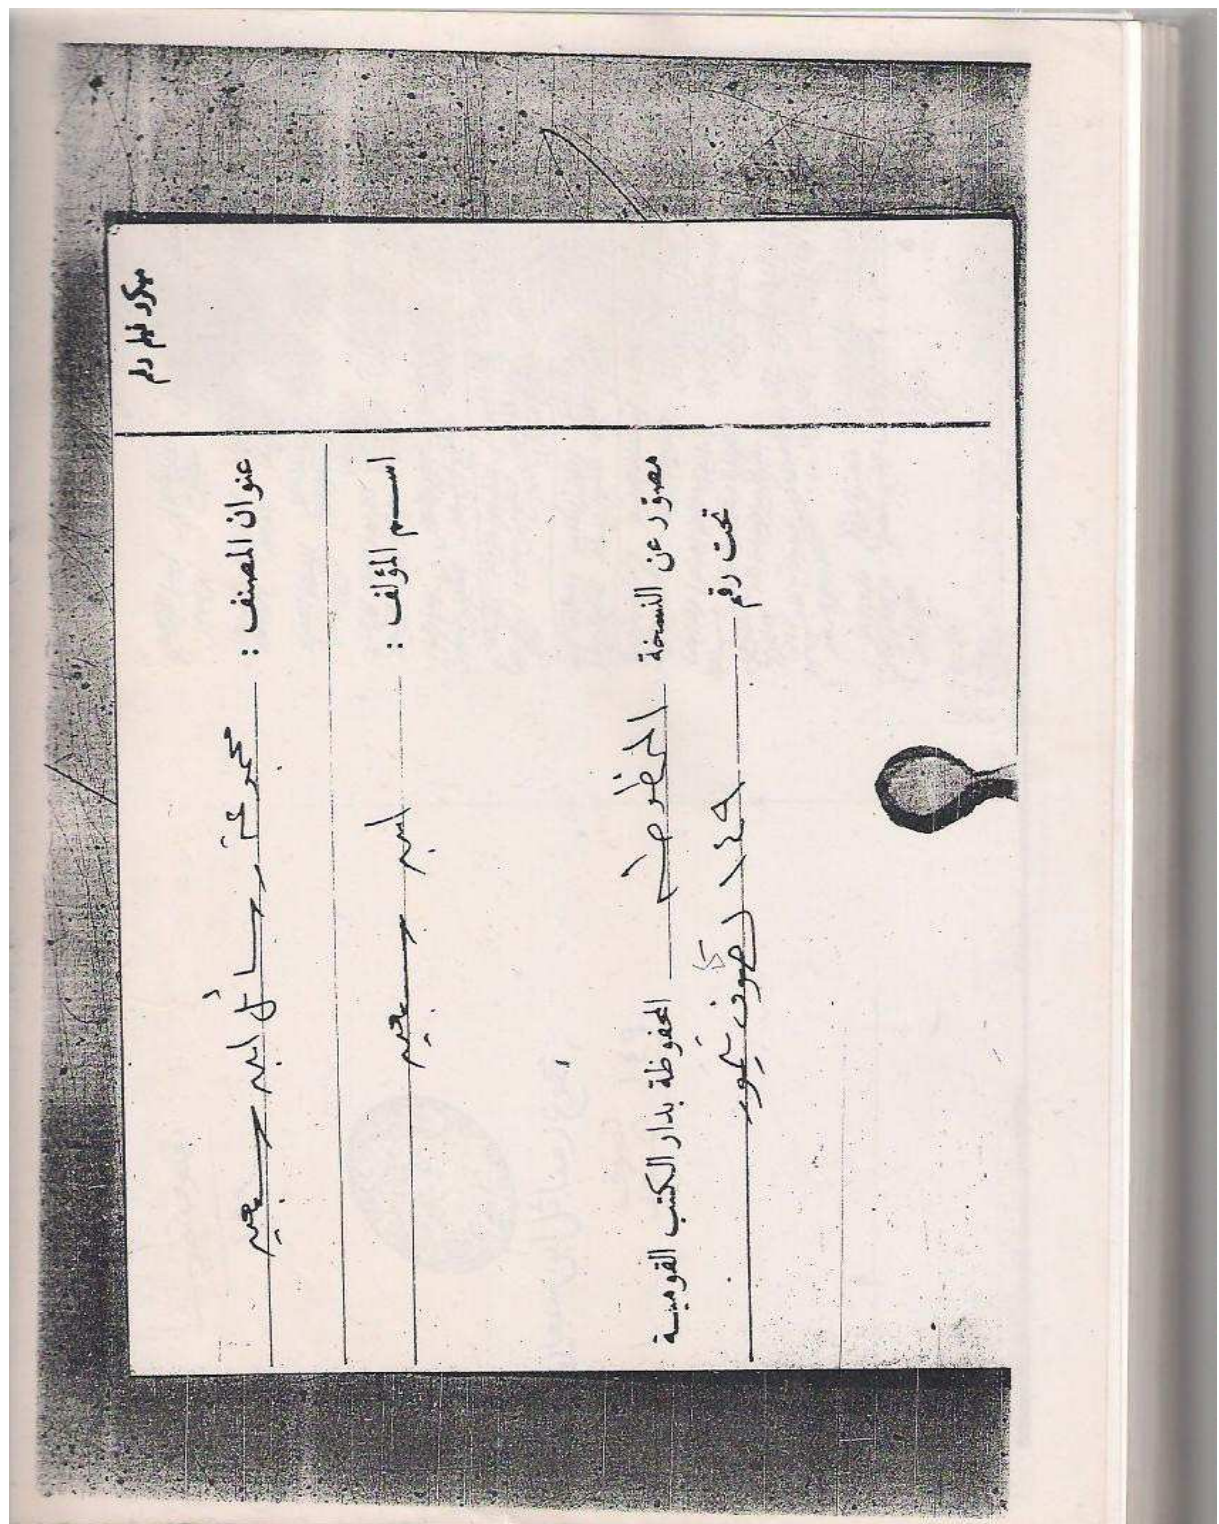 ميكروفيلم رقم
عنوان المصنف : مجموعة رسائل ابن سبعين
اسم المؤلف : ابن سبعين
مصوّر عن النسخة المخطوطة المحفوظة بدار الكتب القومية
تحت رقم ١٤٩ تصوف تيمور